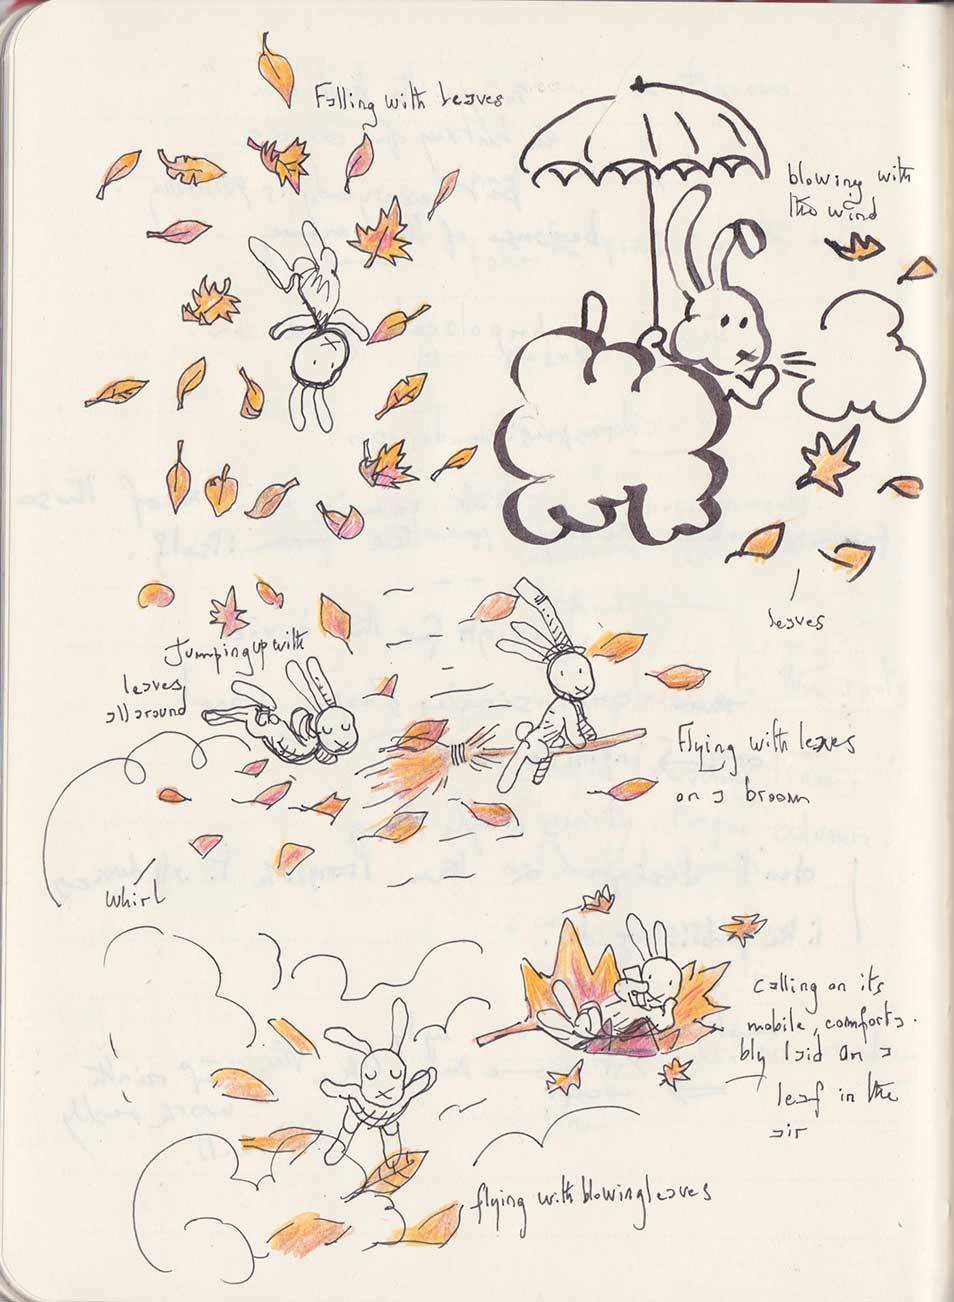 Falling with leaves
blowing with
the wind
leaves
Jumping up with
leaves
all around
Flying with leaves
on a broom
whirl
calling on its
mobile, comforta-
bly laid on a
leaf in the
air
flying with blowing leaves